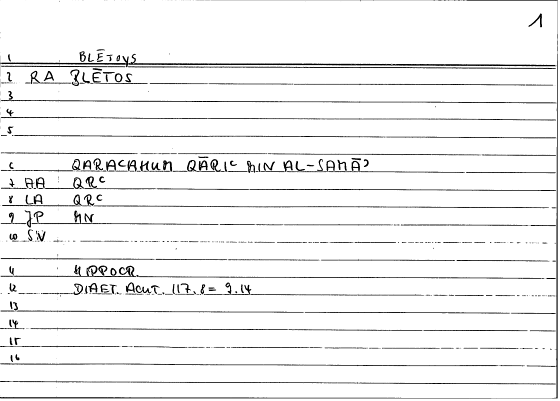 1
1 BLĒTOYS
2 RA BLĒTOS
3
4
5
6 QARACAHUM QĀRIᶜ MIN AL-SAMĀʾ
7 AA QRᶜ
8 LA QRᶜ
9 JP MN
10 SV
11 HIPPOCR.
12 DIAET. ACUT. 117.8 = 9.14
13
14
15
16